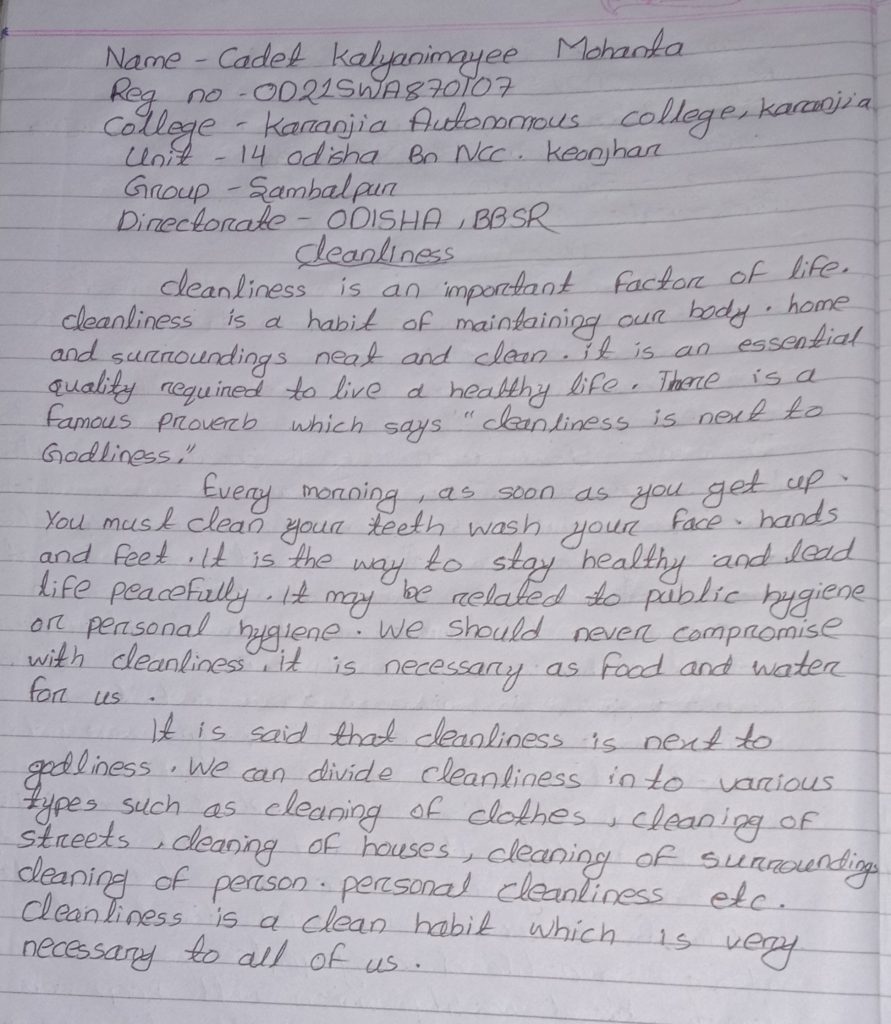 Name - Cadet Kalyanimayee Mohanta
Reg no - OD21SWA870107
College - Karanjia Autonomous college, karanjia
Unit - 14 odisha Bn NCC. Keonjhar
Group - Sambalpur
Directorate - ODISHA, BBSR
Cleanliness
cleanliness is an important factor of life.
cleanliness is a habit of maintaining our body. home
and surroundings neat and clean. it is an essential
quality required to live a healthy life. There is a
famous proverb which says "cleanliness is next to
Godliness."
Every morning, as soon as you get up.
You must clean your teeth wash your face. hands
and feet. It is the way to stay healthy and lead
life peacefully. It may be related to public hygiene
or personal hygiene. We should never compromise
with cleanliness, it is necessary as food and water
for us.
It is said that cleanliness is next to
godliness. We can divide cleanliness in to various
types such as cleaning of clothes, cleaning of
streets, cleaning of houses, cleaning of surroundings
cleaning of person. personal cleanliness etc.
cleanliness is a clean habit which is very
necessary to all of us.